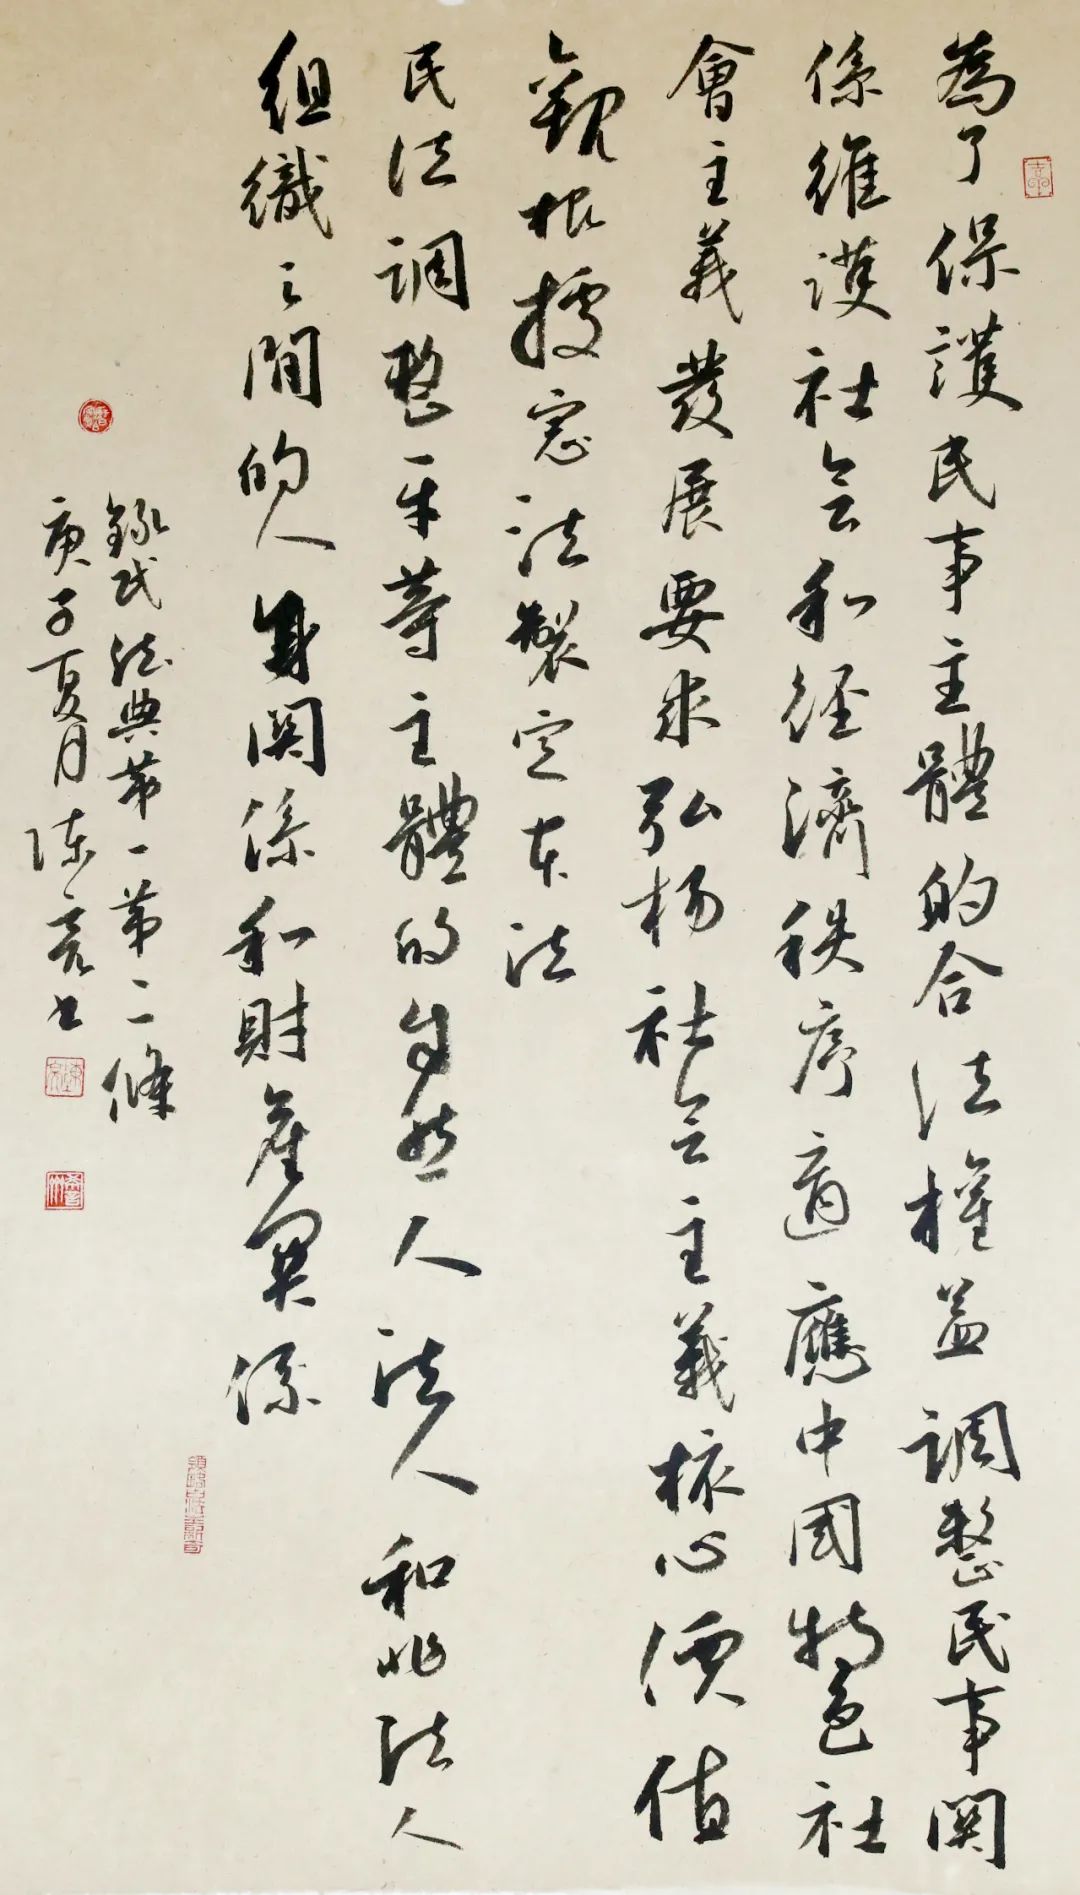 為了保護民事主體的合法權益調整民事関
係維護社会和経濟秩序適應中國特色社
會主義發展要求弘杨社会主義核心價值
觀根據憲法製定本法
民法調整平等主體的自然人法人和非法人
組織之間的人身関係和財產関係
錄民法典第一第二條
庚子夏月陈亮书